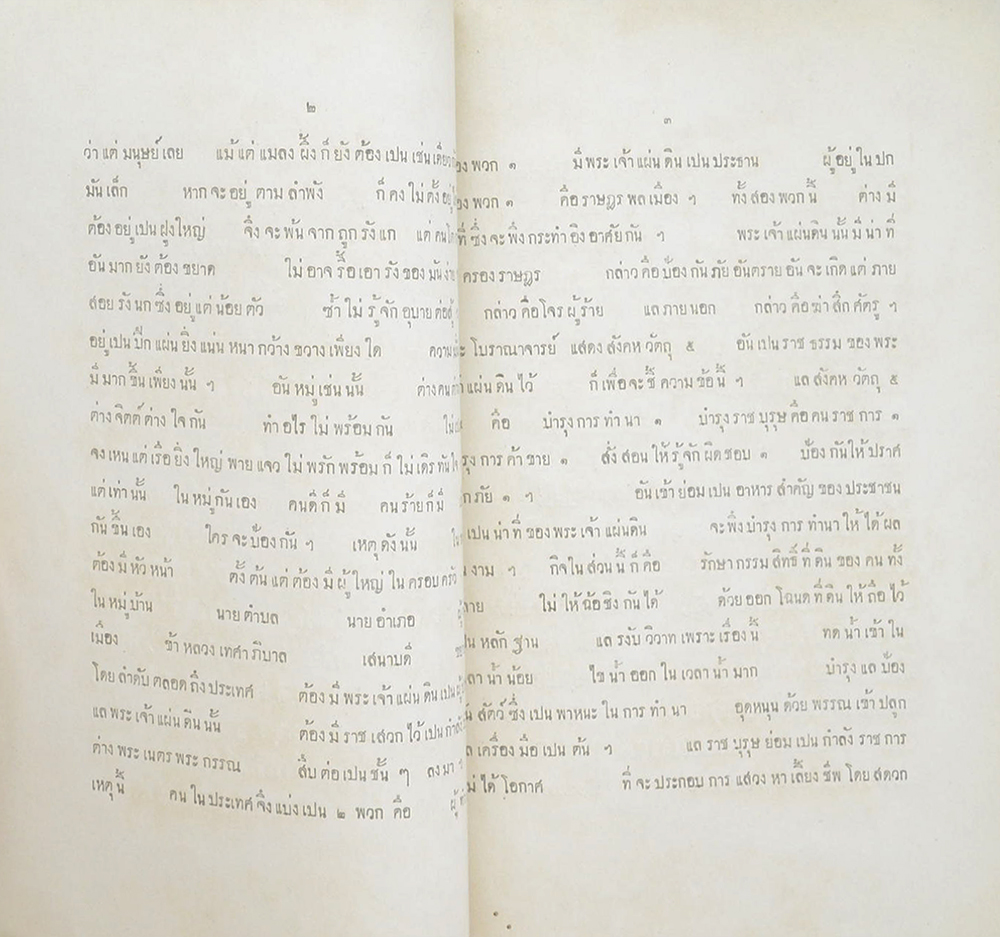 ๒
ว่า แต่ มนุษย์ เลย แม้ แต่ แมลง ผึ้ง ก็ ยัง ต้อง เปน เช่น เดียว
มัน เล็ก หาก จะ อยู่ ตาม ลำพัง ก็ คง ไม่ ตั้ง อยู่
ต้อง อยู่ เปน ฝูงใหญ่ จึ่ง จะ พ้น จาก ถูก รัง แก แต่ คน
อัน มาก ยัง ต้อง ขยาด ไม่ อาจ รื้อ เอา รัง ของ มัน ง่าย
สอย รัง นก ซึ่ง อยู่ แต่ น้อย ตัว ซ้ำ ไม่ รู้ จัก อุบาย ต่อสู้
อยู่ เปน ปึก แผ่น ยิ่ง แน่น หนา กว้าง ขวาง เพียง ใด ความ
มี มาก ขึ้น เพียง นั้น ๆ อัน หมู่ เช่น นั้น ต่าง คน
ต่าง จิตต์ ต่าง ใจ กัน ทำ อไร ไม่ พร้อม กัน
จง เหน แต่ เรือ ยิ่ง ใหญ่ พาย แจว ไม่ พรัก พร้อม ก็ ไม่ เดิร ทัน ใจ
แต่ เท่า นั้น ใน หมู่ กัน เอง คน ดี ก็ มี คน ร้าย ก็ มี
กัน ขึ้น เอง ใคร จะ ป้อง กัน ๆ เหตุ ดัง นั้น
ต้อง มี หัว หน้า ตั้ง ต้น แต่ ต้อง มี ผู้ ใหญ่ ใน ครอบ ครัว
ใน หมู่ บ้าน นาย ตำบล นาย อำเภอ
เมือง ข้า หลวง เทศา ภิบาล เสนาบดี
โดย ลำดับ ตลอด ถึง ประเทศ ต้อง มี พระ เจ้า แผ่น ดิน เปน
แล พระ เจ้า แผ่น ดิน นั้น ต้อง มี ราช เสวก ไว้ เปน กำลัง
ต่าง พระ เนตร พระ กรรณ สืบ ต่อ เปน ชั้น ๆ ลง มา
เหตุ นี้ คน ใน ประเทศ จึ่ง แบ่ง เปน ๒ พวก คือ
๓
พวก ๑ มี พระ เจ้า แผ่น ดิน เปน ประธาน ผู้ อยู่ ใน ปก
พวก ๑ คือ ราษฎร พล เมือง ๆ ทั้ง สอง พวก นี้ ต่าง มี
ที่ ซึ่ง จะ พึ่ง กระทำ อิง อาศัย กัน ๆ พระ เจ้า แผ่นดิน นั้น มี น่า ที่
ครอง ราษฎร กล่าว คือ ป้อง กัน ภัย อันตราย อัน จะ เกิด แต่ ภาย
กล่าว คือ โจร ผู้ ร้าย แล ภาย นอก กล่าว คือ ฆ่า ศึก ศัตรู ๆ
โบราณาจารย์ แสดง สังคห วัตถุ ๕ อัน เปน ราช ธรรม ของ พระ
แผ่น ดิน ไว้ ก็ เพื่อ จะ ชี้ ความ ข้อ นี้ ๆ แล สังคห วัตถุ ๕
คือ บำรุง การ ทำ นา ๑ บำรุง ราช บุรุษ คือ คน ราช การ ๑
การ ค้า ขาย ๑ สั่ง สอน ให้ รู้ จัก ผิด ชอบ ๑ ป้อง กัน ให้ ปราศ
ภัย ๑ ๆ อัน เข้า ย่อม เปน อาหาร สำคัญ ของ ประชาชน
เปน น่า ที่ ของ พระ เจ้า แผ่นดิน จะ พึ่ง บำรุง การ ทำนา ให้ ได้ ผล
งาม ๆ กิจ ใน ส่วน นี้ ก็ คือ รักษา กรรม สิทธิ์ ที่ ดิน ของ คน ทั้ง
ไม่ ให้ ฉ้อ ชิง กัน ได้ ด้วย ออก โฉนด ที่ ดิน ให้ ถือ ไว้
หลัก ฐาน แล รงับ วิวาท เพราะ เรื่อง นี้ ทด น้ำ เข้า ใน
น้ำ น้อย ไข น้ำ ออก ใน เวลา น้ำ มาก บำรุง แล ป้อง
สัตว์ ซึ่ง เปน พาหนะ ใน การ ทำ นา อุดหนุน ด้วย พรรณ เข้า ปลูก
เครื่อง มือ เปน ต้น ๆ แล ราช บุรุษ ย่อม เปน กำลัง ราช การ
ได้ โอกาศ ที่ จะ ประกอบ การ แสวง หา เลี้ยง ชีพ โดย สดวก